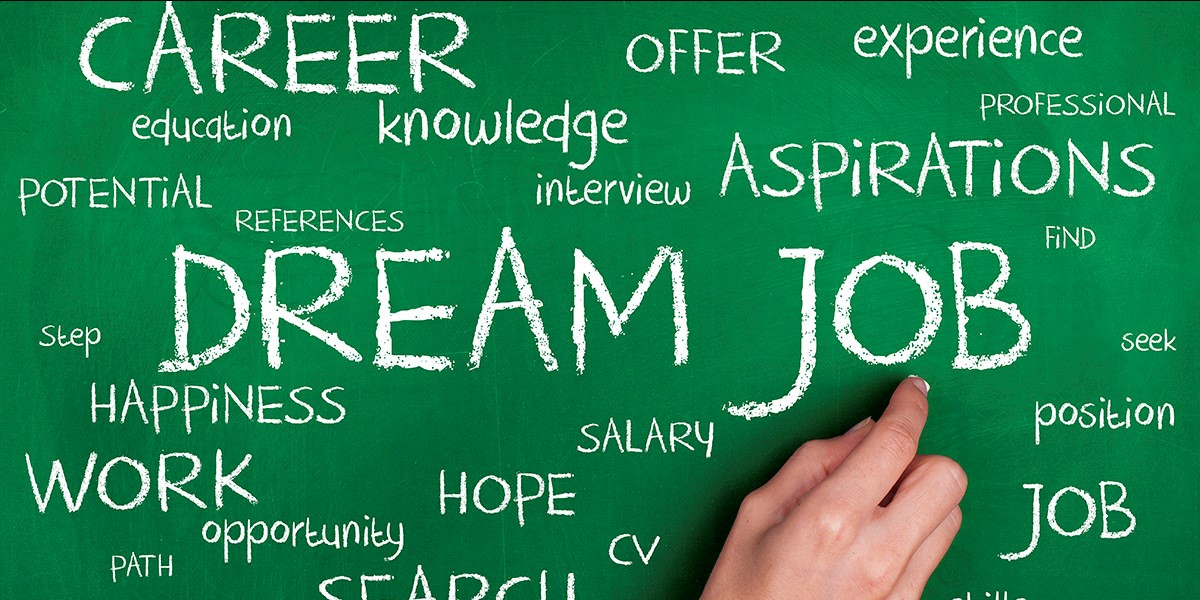 CAREER
OFFER
experience
education
knowledge
PROFESSiONAL
ASPiRATiONS
POTENTiAL
interview
REFERENCES
FiND
DREAM JOB
Step
seek
HAPPiNESS
SALARY
position
WORK
HOPE
JOB
opportunity
CV
PATH
SEARCH
skills